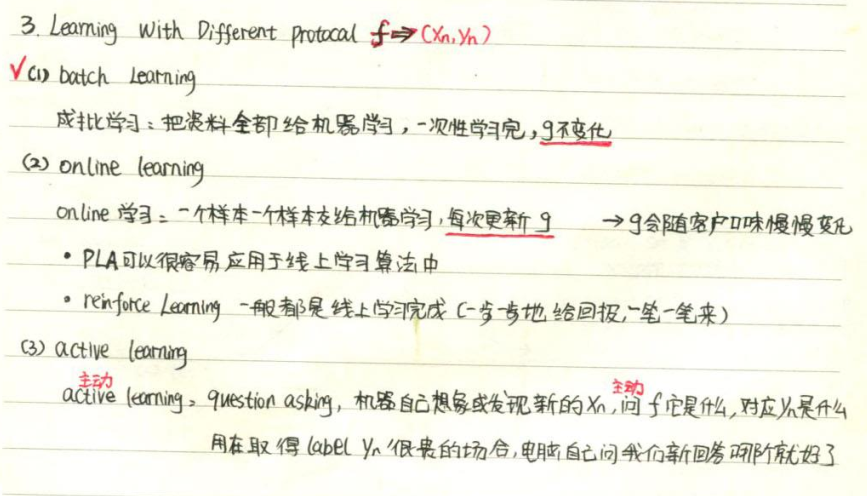 3. Learning With Different Protocal f⇒(Xn,yn)
✓(1) batch Learning
成批学习：把资料全部给机器学习，一次性学习完，g不变化
(2) online learning
online 学习：一个样本一个样本交给机器学习，每次更新 g →g会随客户口味慢慢变化
• PLA可以很容易应用于线上学习算法中
• reinforce Learning 一般都是线上学习完成（一步一步地给回报，一笔一笔来）
(3) active learning
主动 主动
active learning：question asking，机器自己想象或发现新的Xn，问 f 它是什么，对应yn是什么
用在取得label yn 很贵的场合，电脑自己问我们 回答 就好了